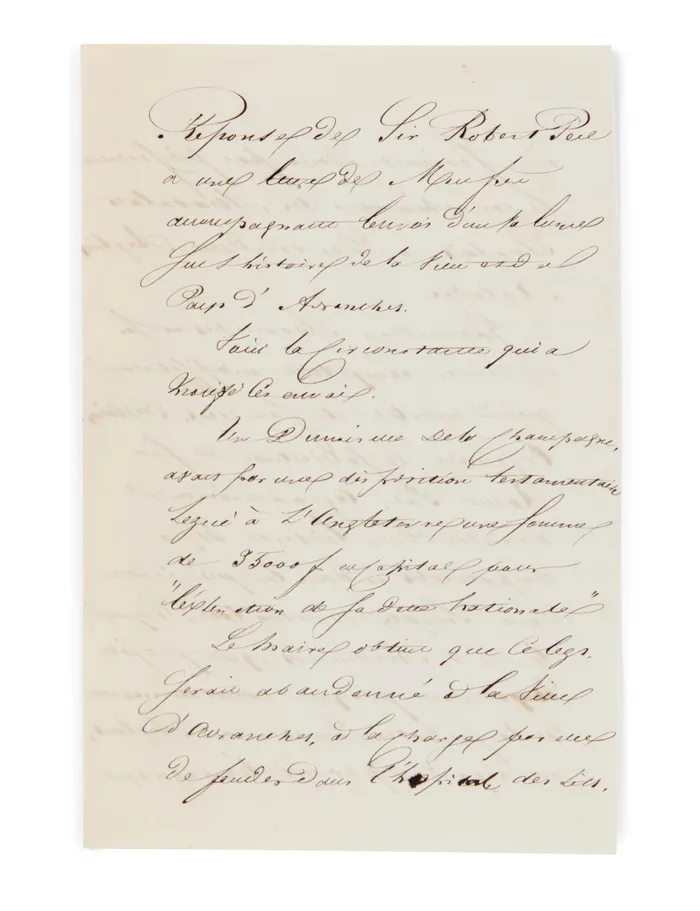 Réponse de Sir Robert Peel
à une lettre de Mon père
accompagnant l'envoi d'un volume
sur l'histoire de la Ville et du
Pays d'Avranches.
Voici la Circonstance qui a
motivé cet envoi.
Un De la Champagne,
avait par une disposition testamentaire
Légué à L'Angleterre une somme
de 35000f en Capital pour
"l'extinction de sa dette nationale"
Le maire obtint que ce legs.
serait abandonné à la Ville
d'Avranches, à la charge par elle
de fonder dans l'hôpital des Lits.